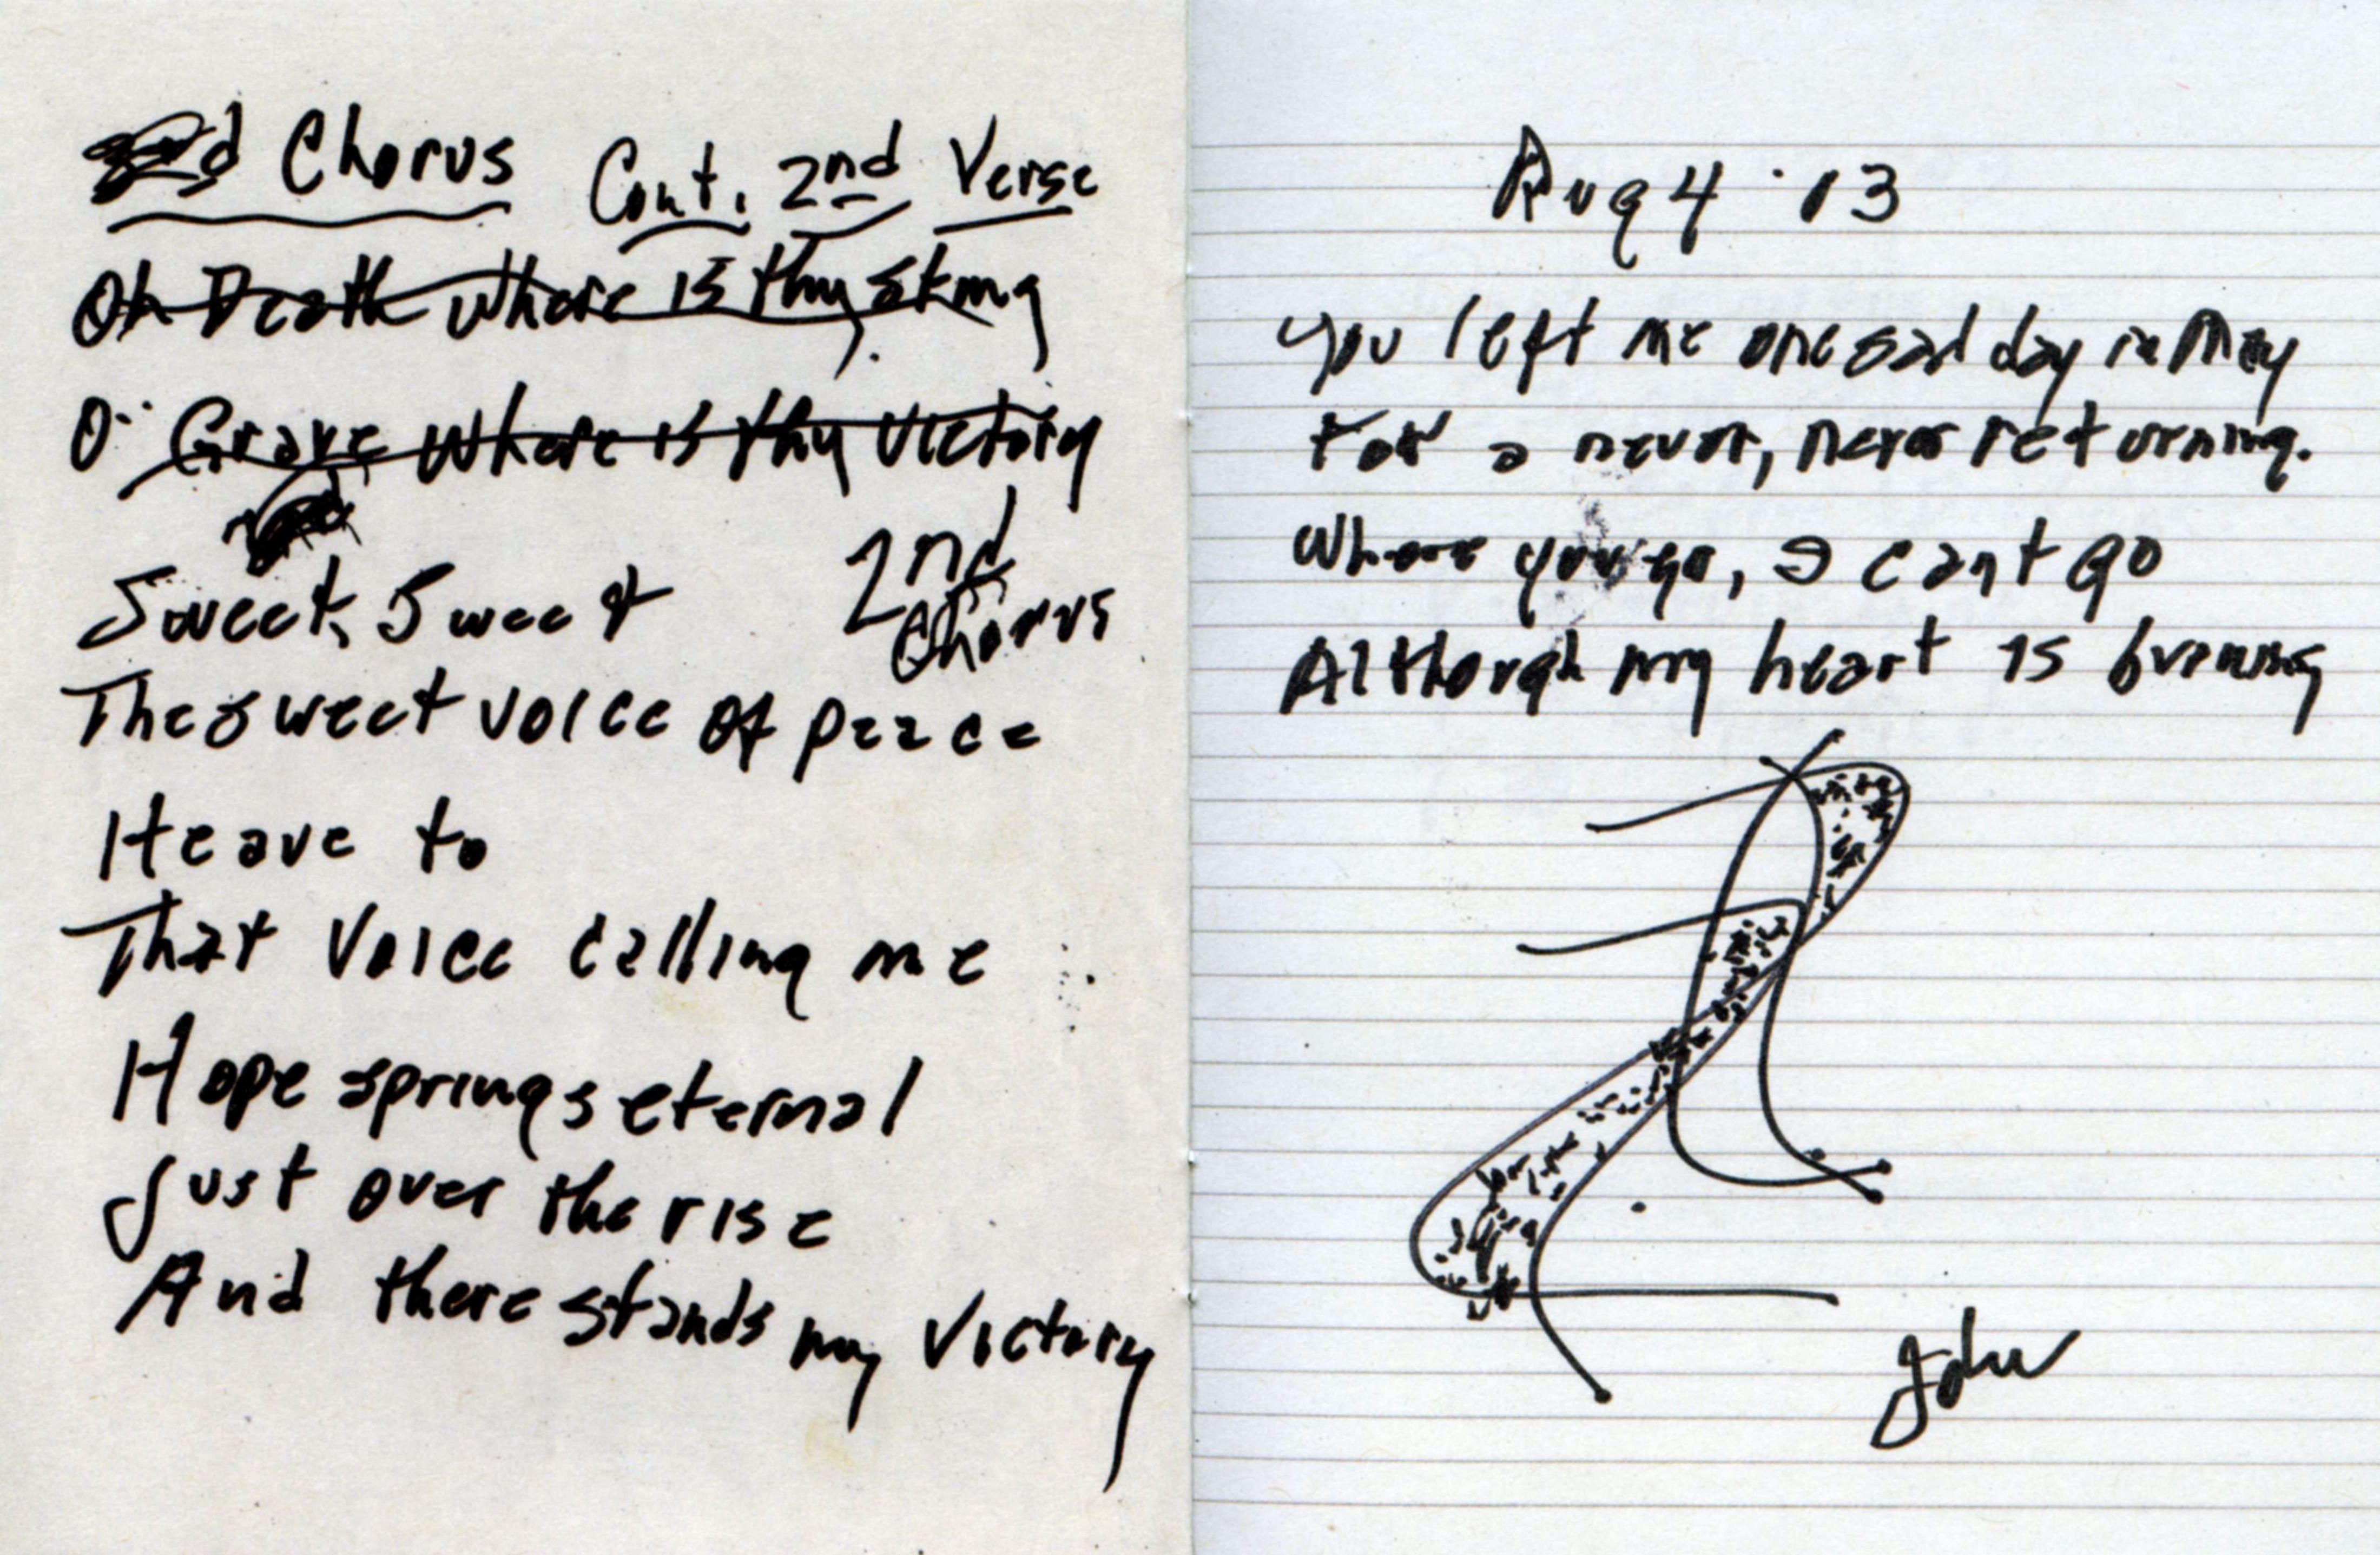 Chorus Cont. 2nd Verse
Oh Death where is thy sting
O' Grave where is thy victory
Sweet, Sweet
2nd
Chorus
The sweet voice of peace
Heave to
That voice calling me
Hope springs eternal
Just over the rise
And there stands my Victory
Aug 4 '03
You left me one sad day in May
For a never, never returning.
Where you go, I cant go
Although my heart is burning
John